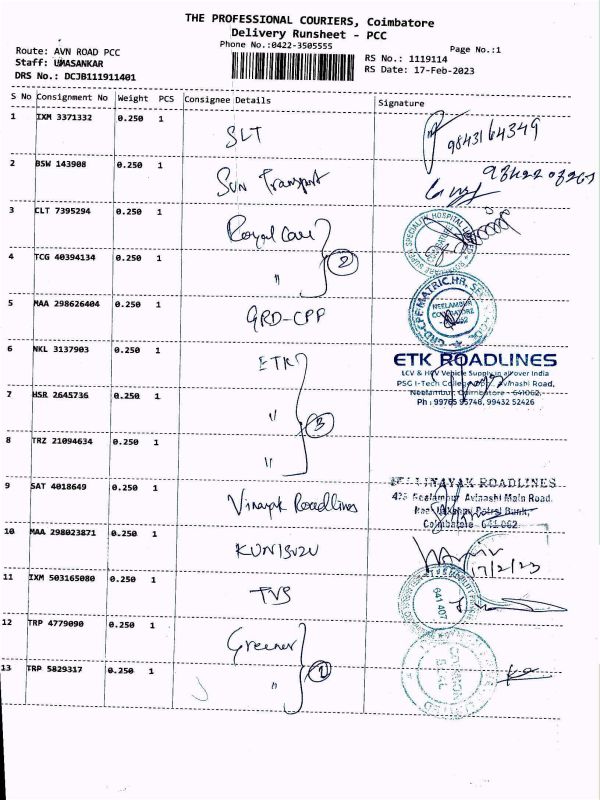 THE PROFESSIONAL COURIERS, Coimbatore
Delivery Runsheet - PCC
Phone No.:0422-3505555
Page No.:1
Route: AVN ROAD PCC
Staff: UMASANKAR
DRS No.: DCJB111911401
RS No.: 1119114
RS Date: 17-Feb-2023
S No Consignment No Weight PCS Consignee Details Signature
1 IXM 3371332 0.250 1 SLT 9843164349
2 BSW 143908 0.250 1 Sun Transport
3 CLT 7395294 0.250 1 Royal Care
4 TCG 40394134 0.250 1 " 2
5 MAA 298626404 0.250 1 GRD-CPP
NEELAMBUR
COIMBATORE
6 NKL 3137903 0.250 1 ETK
ETK ROADLINES
LCV & HCV Vehicle Supply in all over India
PSG I-Tech College Opp. Avinashi Road,
Neelambur, Coimbatore - 641062.
Ph : 99765 95748, 99432 52426
7 HSR 2645736 0.250 1 " 3
8 TRZ 21094634 0.250 1 "
9 SAT 4018649 0.250 1 Vinayak Roadlines
VINAYAK ROADLINES
Neelambur Avinashi Main Road.
Coimbatore - 641 062
10 MAA 298023871 0.250 1 KUN ISUZU 17/2/23
11 IXM 503165080 0.250 1 TVS
641 407
12 TRP 4779090 0.250 1 Greener
13 TRP 5829317 0.250 1 " 1